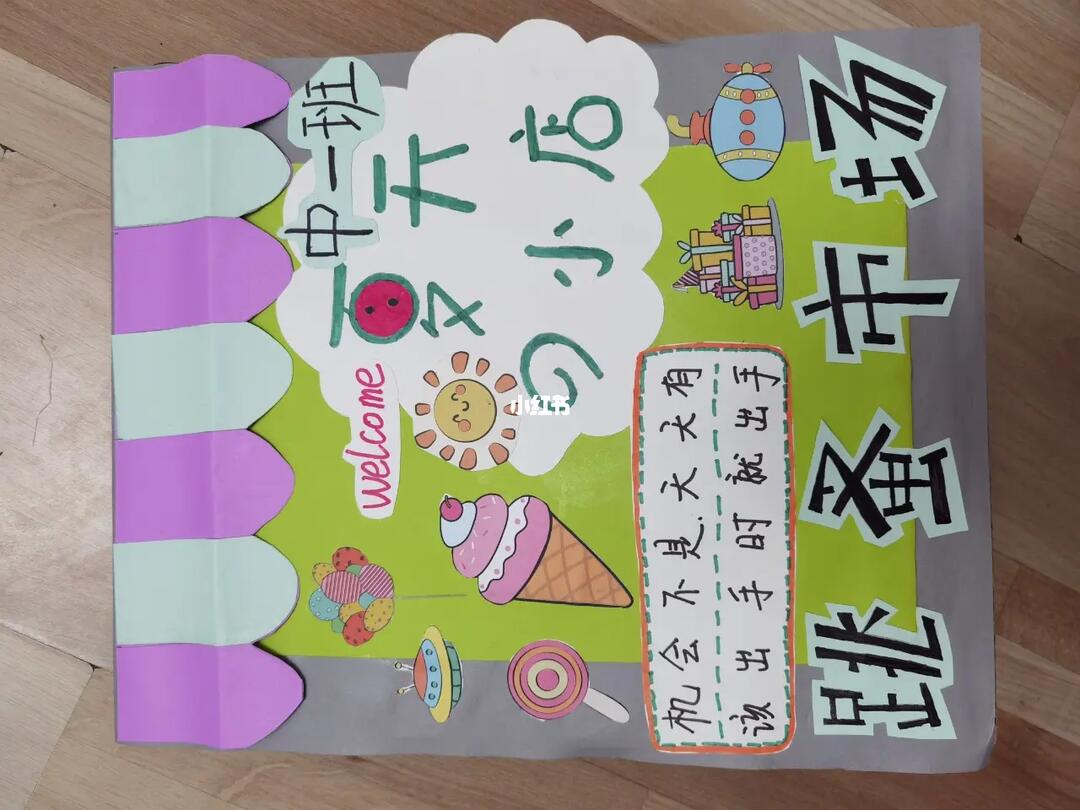 中一班
夏开
の小店
welcome
小红书
机会不是天天有
该出手时就出手
跳蚤市场